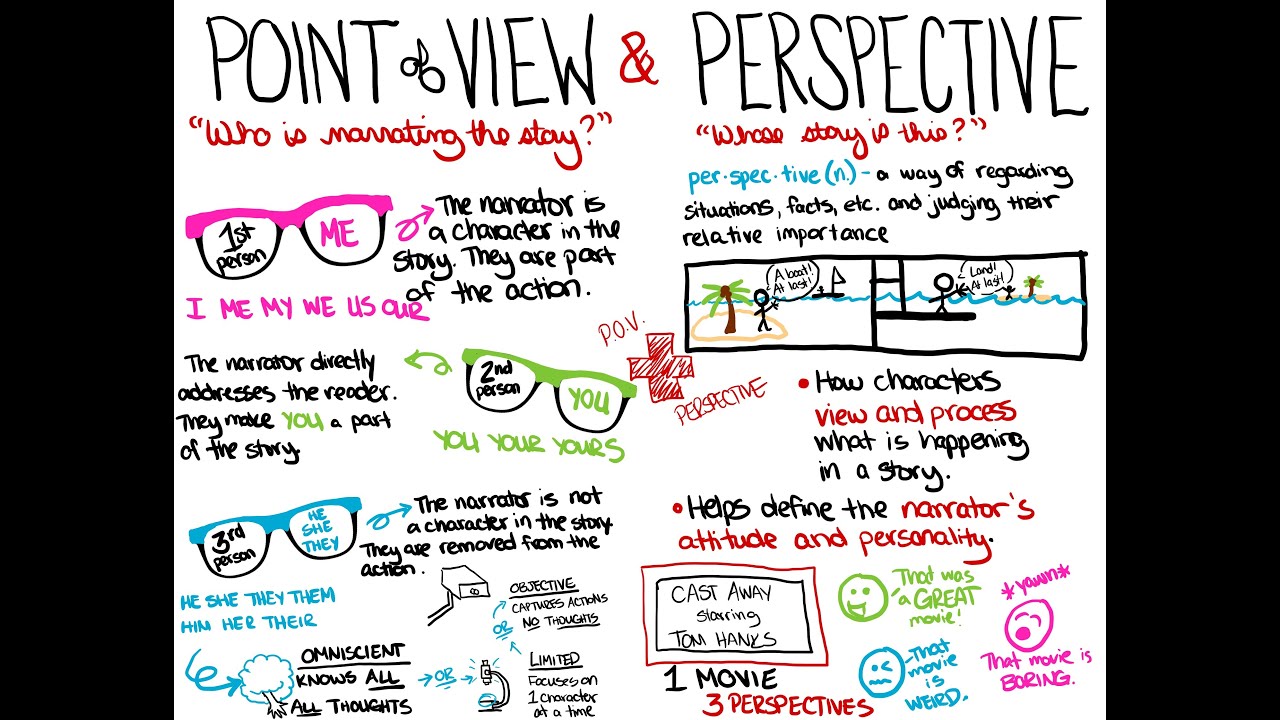 POINT of VIEW & PERSPECTIVE
"Who is narrating the stoy?"
1st person
ME
The narrator is
a character in the
story. They are part
of the action.
I ME MY WE US OUR
The narrator directly
addresses the reader.
They make YOU a part
of the story.
2nd person
YOU
YOU YOUR YOURS
3rd person
HE
SHE
THEY
The narrator is not
a character in the story.
They are removed from the
action.
HE SHE THEY THEM
HIM HER THEIR
OMNISCIENT
KNOWS ALL
ALL THOUGHTS
OR
LIMITED
Focuses on
1 character
at a time
OR
OBJECTIVE
CAPTURES ACTIONS
NO THOUGHTS
P.O.V.
PERSPECTIVE
"Whose story is this?"
per·spec·tive (n.) - a way of regarding
situations, facts, etc. and judging their
relative importance
A boat!
At last!
Land!
At last!
• How characters
view and process
what is happening
in a story.
• Helps define the narrator's
attitude and personality.
CAST AWAY
starring
TOM HANKS
1 MOVIE
3 PERSPECTIVES
That was
a GREAT
movie!
That
movie
is
WEIRD.
*yawn*
That movie is
BORING.